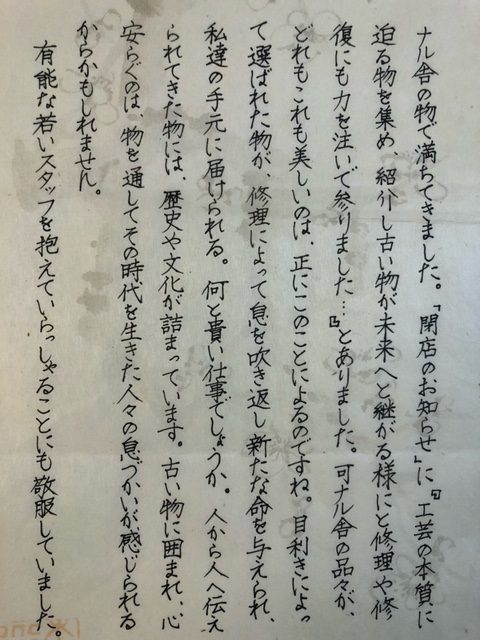 ナル舎の物で満ちてきました。「閉店のお知らせ」に『工芸の本質に
迫る物を集め、紹介し古い物が未来へと継がる様にと修理や修
復にも力を注いで参りました…』とありました。可ナル舎の品々が、
どれもこれも美しいのは、正にこのことによるのですね。目利きによっ
て選ばれた物が、修理によって息を吹き返し新たな命を与えられ、
私達の手元に届けられる。何と貴い仕事でしょうか。人から人へ伝え
られてきた物には、歴史や文化が詰まっています。古い物に囲まれ、心
安らぐのは、物を通してその時代を生きた人々の息づかいが感じられる
からかもしれません。
有能な若いスタッフを抱えていらっしゃることにも敬服していました。